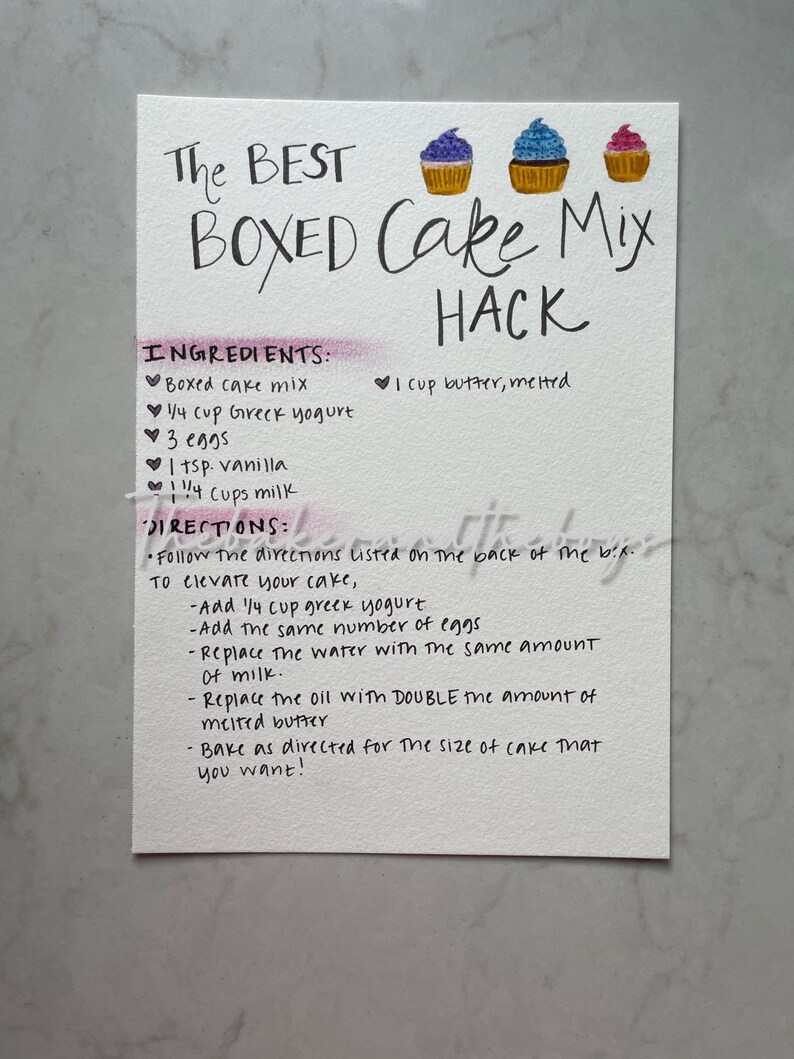 The BEST
BOXED Cake Mix
HACK
INGREDIENTS:
Boxed cake mix
1 cup butter, melted
1/4 cup Greek yogurt
3 eggs
1 tsp. vanilla
1 1/4 cups milk
Thebakerandtheboys
DIRECTIONS:
• Follow the directions listed on the back of the box.
To elevate your cake,
- Add 1/4 cup greek yogurt
- Add the same number of eggs
- Replace the water with the same amount
of milk.
- Replace the oil with DOUBLE the amount of
melted butter
- Bake as directed for the size of cake that
you want!